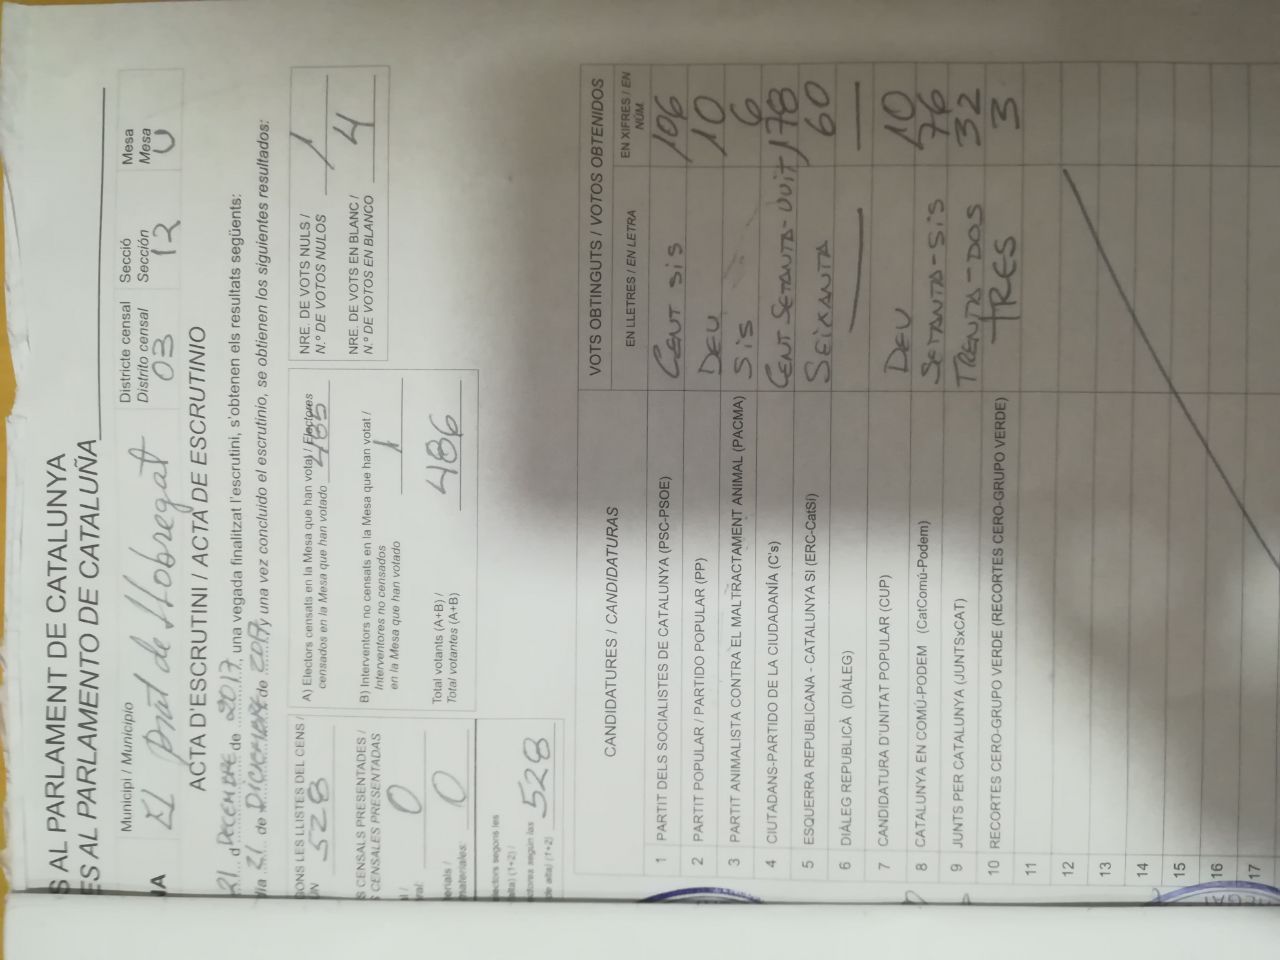 S AL PARLAMENT DE CATALUNYA
ES AL PARLAMENTO DE CATALUÑA
Municipi / Municipio
El Prat de Llobregat
Districte censal
Distrito censal
03
Secció
Sección
12
Mesa
Mesa
U
ACTA D'ESCRUTINI / ACTA DE ESCRUTINIO
21 d DECEMBRE de 2017, una vegada finalitzat l'escrutini, s'obtenen els resultats següents:
día 21 de DICIEMBRE de 2017, y una vez concluido el escrutinio, se obtienen los siguientes resultados:
GONS LES LLISTES DEL CENS /
528
S CENSALS PRESENTADES /
S CENSALES PRESENTADAS
0
0
ectors segons les
alta) (1+2) /
ctores según las
de alta) (1+2)
528
A) Electors censats en la Mesa que han votat / Electores
censados en la Mesa que han votado 485
B) Interventors no censats en la Mesa que han votat /
Interventores no censados
en la Mesa que han votado
1
Total votants (A+B) /
Total votantes (A+B)
486
NRE. DE VOTS NULS /
N.º DE VOTOS NULOS
1
NRE. DE VOTS EN BLANC /
N.º DE VOTOS EN BLANCO
4
CANDIDATURES / CANDIDATURAS
VOTS OBTINGUTS / VOTOS OBTENIDOS
EN LLETRES / EN LETRA
EN XIFRES / EN NÚM.
1 PARTIT DELS SOCIALISTES DE CATALUNYA (PSC-PSOE) CENT SIS 106
2 PARTIT POPULAR / PARTIDO POPULAR (PP) DEU 10
3 PARTIT ANIMALISTA CONTRA EL MALTRACTAMENT ANIMAL (PACMA) SIS 6
4 CIUTADANS-PARTIDO DE LA CIUDADANÍA (C's) CENT SETANTA-VUIT 178
5 ESQUERRA REPUBLICANA - CATALUNYA SÍ (ERC-CatSí) SEIXANTA 60
6 DIÀLEG REPUBLICÀ (DIÀLEG)
7 CANDIDATURA D'UNITAT POPULAR (CUP) DEU 10
8 CATALUNYA EN COMÚ-PODEM (CatComú-Podem) SETANTA-SIS 76
9 JUNTS PER CATALUNYA (JUNTSxCAT) TRENTA-DOS 32
10 RECORTES CERO-GRUPO VERDE (RECORTES CERO-GRUPO VERDE) TRES 3
11
12
13
14
15
16
17